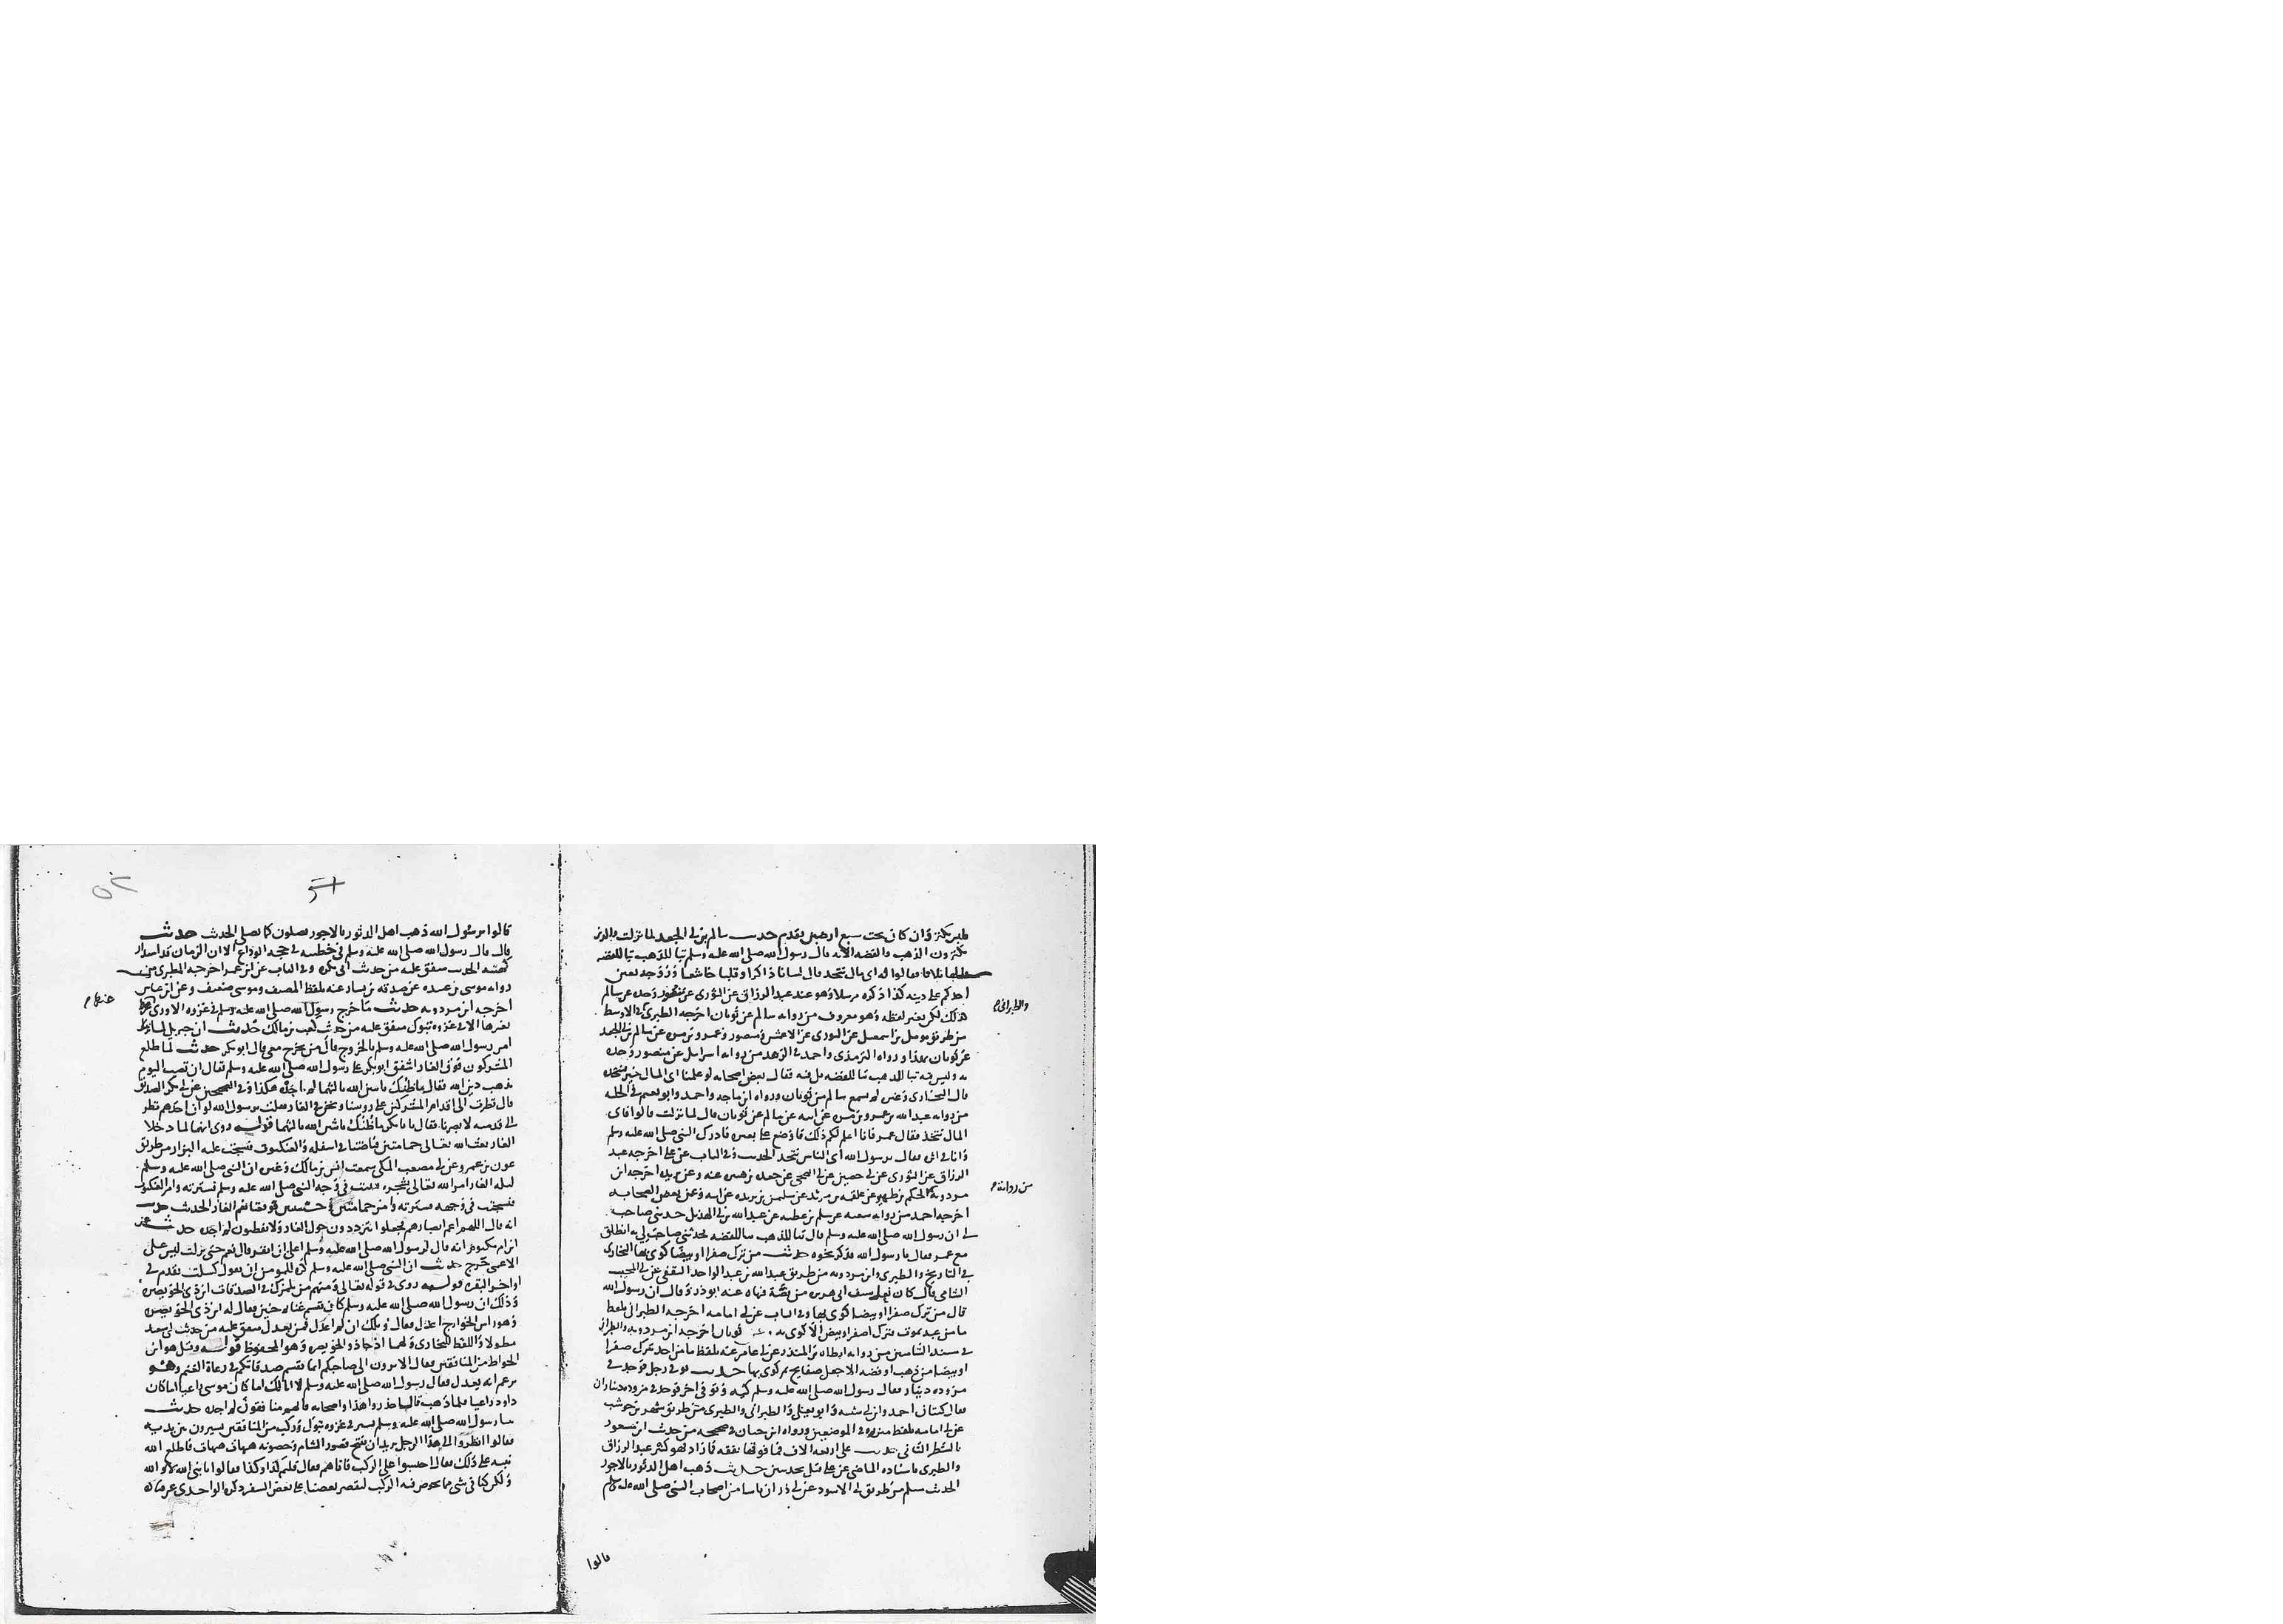 فليس بكنز وان كان تحت سبع ارضين تقدم حديث سالم بن ابي الجعد لما نزلت والذين
يكنزون الذهب والفضه الايه قال رسول الله صلى الله عليه وسلم تبا للذهب تبا للفضه
قالها ثلاثا فقالوا له اي مال نتخذ قال لسانا ذاكرا وقلبا خاشعا وزوجه تعين
احدكم على دينه كذا ذكره مرسلا وهو عند عبد الرزاق عن الثوري عن منصور وحده عن سالم
كذلك لكن بغير لفظه وهو معروف من روايه سالم عن ثوبان اخرجه الطبري في الاوسط
والطبراني
من طريق مومل بن اسمعيل عن الثوري عن الاعمش ومنصور وعمرو بن مره عن سالم بن ابي الجعد
عن ثوبان بهذا ورواه الترمذي واحمد في الزهد من روايه اسرايل عن منصور وحده
به وليس فيه تبا للذهب تبا للفضه بل فيه فقال بعض اصحابه لو علمنا اي المال خير نتخذه
قال البخاري وغيره لم يسمع سالم من ثوبان ورواه ابن ماجه واحمد وابو نعيم في الحليه
من روايه عبد الله بن عمرو بن مره عن ابيه عن سالم عن ثوبان قال لما نزلت قالوا فاي
المال نتخذ فقال عمر فانا اعلم لكم ذلك فاوضع على بعيره فادرك النبي صلى الله عليه وسلم
وانا في اثره فقال يرسول الله اي الناس نتخذ الحديث وفي الباب عن علي اخرجه عبد
الرزاق عن الثوري عن ابي حصين عن ابي الضحى عن جعده بن هبيره عنه وعن بريده اخرجه ابن
مردويه الحكم بن ظهير عن علقمه بن مرثد عن سليمن بن بريده عن ابيه وعن بعض الصحابه
من رواية
اخرجه احمد من روايه شعبه عن سلم بن عطيه عن عبد الله بن ابي الهذيل حدثني صاحب
لي ان رسول الله صلى الله عليه وسلم قال تبا للذهب تبا للفضه فحدثني صاحبي انه انطلق
مع عمر فقال يا رسول الله فذكر نحوه حديث من ترك صفرا او بيضا كوي بها البخاري
في التاريخ والطبري وابن مردويه من طريق عبد الله بن عبد الواحد الثقفي عن ابي المجيب
الشامي قال كان نعل سيف ابي هريره من فضة فنهاه عنه ابو ذر وقال ان رسول الله
قال من ترك صفرا او بيضا كوي بها وفي الباب عن ابي امامه اخرجه الطبراني بلفظ
ما من عبد يموت فيترك اصفر او ابيض الا كوي به ثوبان اخرجه ابن مردويه والطبراني
في مسند الشاميين من روايه ارطاه بن المنذر عن ابي عامر عنه بلفظ ما من احد يترك صفرا
او بيضا من ذهب او فضه الا جعل صفايح ثم كوي بها حديث توفي رجل فوجد في
مزوده دينار فقال رسول الله صلى الله عليه وسلم كيه وتوفي اخر فوجد في مزوده ديناران
فقال كيتان احمد وابن ابي شيبه وابو يعلى والطبراني والطبري من طريق شهر بن حوشب
عن ابي امامه بلفظ مئزره في الموضعين ورواه ابن حبان في صحيحه من حديث ابن مسعود
بالشطر الثاني حديث علي اربعه الاف فما فوقها نفقه فما زاد فهو كنز عبد الرزاق
والطبري باسناده الماضي عن علي قبل بحديثين حديث ذهب اهل الدثور بالاجور
الحديث مسلم من طريق ابي الاسود عن ابي ذر ان ناسا من اصحاب النبي صلى الله عليه وسلم
قالوا
٥٢
قالوا يرسول الله ذهب اهل الدثور بالاجور يصلون كما نصلي الحديث حديث
قال قال رسول الله صلى الله عليه وسلم في خطبته في حجه الوداع الا ان الزمان قد استدار
كهيئته الحديث متفق عليه من حديث ابي بكره وفي الباب عن ابن عمر اخرجه الطبري من
روايه موسى بن عبيده عن صدقه بن يسار عنه بلفظ المصنف وموسى ضعيف وعن ابن عباس
اخرجه ابن مردويه حديث ما خرج رسول الله صلى الله عليه وسلم في غزوه الا ورى
عنها
بغيرها الا في غزوه تبوك متفق عليه من حديث كعب بن مالك حديث ان جبريل لما
امر رسول الله صلى الله عليه وسلم بالخروج قال من يخرج معي قال ابو بكر حديث لما طلع
المشركون فوق الغار اشفق ابو بكر على رسول الله صلى الله عليه وسلم فقال ان تصب اليوم
يذهب دين الله فقال ما ظنك باثنين الله ثالثهما لم اجده هكذا وفي الصحيحين عن ابي بكر الصديق
قال نظرت الى اقدام المشركين على روسنا ونحن في الغار فقلت يرسول الله لو ان احدهم نظر
الى قدميه لابصرنا فقال يا با بكر ما ظنك باثنين الله ثالثهما قوله روي انهما لما دخلا
الغار بعث الله تعالى حمامتين فباضتا في اسفله والعنكبوت فنسجت عليه البزار من طريق
عون بن عمرو عن ابي مصعب المكي سمعت انس بن مالك وغيره ان النبي صلى الله عليه وسلم
ليله الغار امر الله تعالى شجره فنبتت في وجه النبي صلى الله عليه وسلم فسترته وامر العنكبوت
فنسجت في وجهه فسترته وامر حمامتين وحشيتين فوقفتا بفم الغار الحديث حديث
انه قال اللهم اعم ابصارهم فجعلوا يترددون حول الغار ولا يفطنون لم اجده حديث عن
ابن ام مكتوم انه قال لرسول الله صلى الله عليه وسلم اعلي ان انفر قال نعم حتى نزلت ليس على
الاعمى حرج حديث ان النبي صلى الله عليه وسلم كره للمومن ان يقول كسلت تقدم في
اواخر البقره قوله روي في قوله تعالى ومنهم من يلمزك في الصدقات ابن ذي الخويصره
وذلك ان رسول الله صلى الله عليه وسلم كان يقسم غنايم حنين فقال له ابن ذي الخويصره
وهو راس الخوارج اعدل فقال ويلك ان لم اعدل فمن يعدل متفق عليه من حديث ابي سعيد
مطولا واللفظ للبخاري ولهما اذ جاء ذو الخويصره وهو المحفوظ قوله وقيل هو ابن
الخواط من المنافقين فقال الا ترون الى صاحبكم انما يقسم صدقاتكم في رعاة الغنم وهو
يزعم انه يعدل فقال رسول الله صلى الله عليه وسلم لا ابا لك اما كان موسى راعيا اما كان
داود راعيا فلما ذهب قال احذروا هذا واصحابه فانهم منافقون لم اجده حديث
بينا رسول الله صلى الله عليه وسلم يسير في غزوه تبوك وركب من المنافقين يسيرون بين يديه
فقالوا انظروا الى هذا الرجل يريد ان يفتح قصور الشام وحصونه هيهات هيهات فاطلع الله
نبيه على ذلك فقال احبسوا علي الركب فاتاهم فقال قلتم كذا وكذا فقالوا يا نبي الله لا والله
ولكن كنا في شي مما يخوض فيه الركب ليقصر بعضنا على بعض السفر ذكره الواحدي عن قتاده